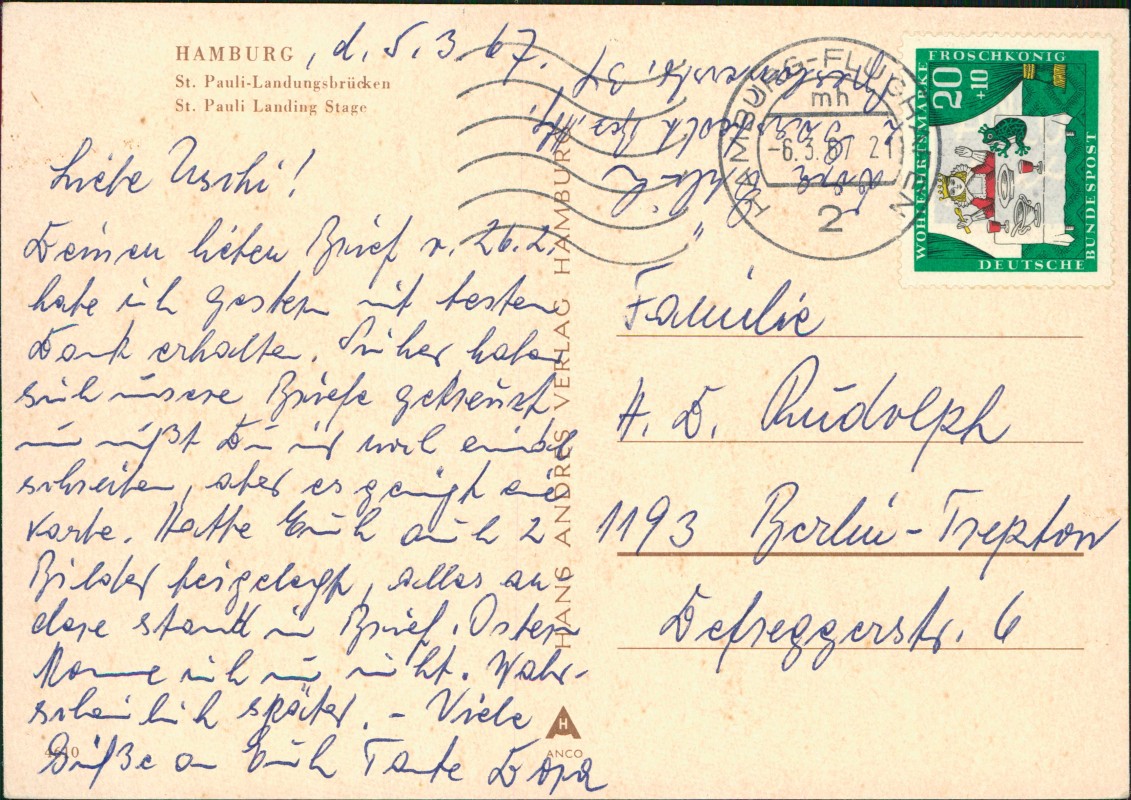 HAMBURG, d. 5.3.67.
St. Pauli-Landungsbrücken
St. Pauli Landing Stage
Liebe Uschi!
Deinen lieben Brief v. 26.2.
habe ich gestern mit besten
Dank erhalten. Sicher haben
sich unsere Briefe gekreuzt
nun mußt Du mir
schreiben, aber es genügt eine
Karte. Hatte Euch auch 2
Bilder beigelegt, alles an
dere stand im Brief. Ostern
komme ich nun nicht. Wahr-
scheinlich später. - Viele
Grüße an Euch Tante Dora
4610
HANS ANDRES VERLAG HAMBURG
ANCO
2
HAMBURG-FLUGHAFEN
mh
-6.3.67 21
2
FROSCHKÖNIG
20
+10
WOHLFAHRTSMARKE
DEUTSCHE
BUNDESPOST
Familie
H. D. Rudolph
1193 Berlin-Treptow
Defreggerstr. 6